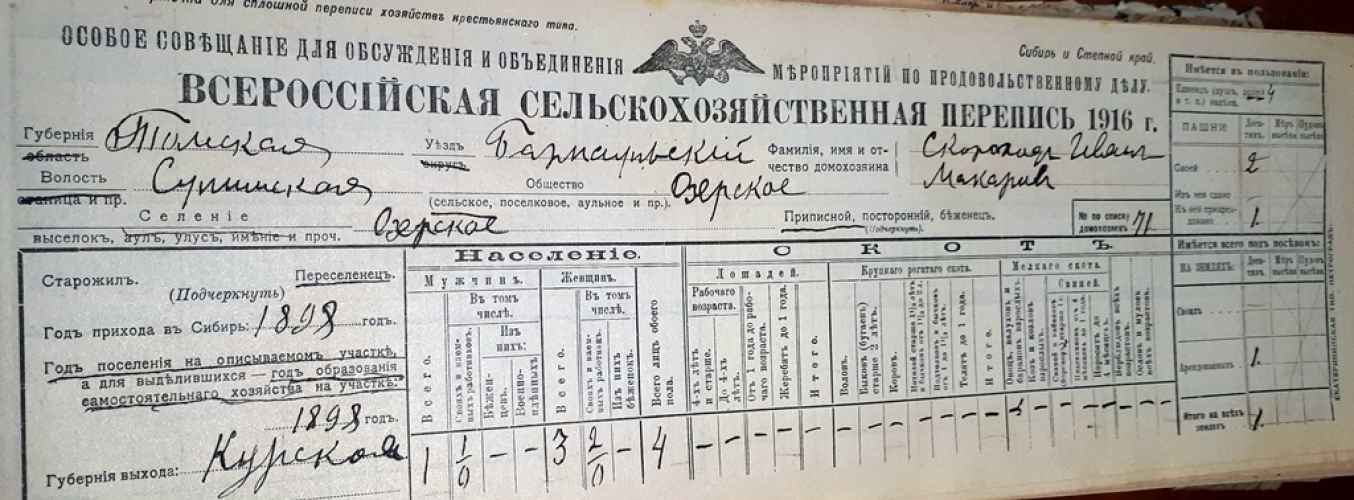 для сплошной переписи хозяйствъ крестьянскаго типа.
Сибирь и Степной край.
ОСОБОЕ СОВѢЩАНІЕ ДЛЯ ОБСУЖДЕНІЯ И ОБЪЕДИНЕНІЯ МѢРОПРІЯТІЙ ПО ПРОДОВОЛЬСТВЕННОМУ ДѢЛУ.
ВСЕРОССІЙСКАЯ СЕЛЬСКОХОЗЯЙСТВЕННАЯ ПЕРЕПИСЬ 1916 г.
Губернія Томская Уѣздъ Барнаульскій Фамилія, имя и от- Скороходъ Иванъ
область округъ чество домохозяина Макаровъ
Волость Общество Озерское
станица и пр. (сельское, поселковое, аульное и пр.).
Селеніе Озерское Приписной, посторонній, бѣженецъ. № по списку 71
выселокъ, аулъ, улусъ, имѣніе и проч. (Подчеркнуть). домохозяевъ
Старожилъ. Переселенецъ.
(Подчеркнуть)
Годъ прихода въ Сибирь: 1898 годъ.
Годъ поселенія на описываемомъ участкѣ,
а для выдѣлившихся — годъ образованія
самостоятельнаго хозяйства на участкѣ:
1898 годъ.
Губернія выхода: Курская
Населеніе.
Мужчинъ. Женщинъ.
Всего.
Въ томъ числѣ.
Своихъ и наемныхъ работниковъ.
Изъ нихъ:
Бѣженцевъ.
Военноплѣнныхъ
Всего.
Въ томъ числѣ.
Своихъ и наемныхъ работницъ.
Изъ нихъ бѣженокъ.
Всего лицъ обоего пола.
1 1/0 – – 3 2/0 – 4
СКОТЪ.
Лошадей.
Рабочаго возраста.
4-хъ лѣтъ и старше.
До 4-хъ лѣтъ.
Отъ 1 года до рабочаго возраста.
Жеребятъ до 1 года.
Итого.
Крупнаго рогатаго скота.
Воловъ.
Быковъ (бугаевъ) старше 2 лѣтъ.
Коровъ.
Телятъ до 1 года.
Итого.
Мелкаго скота.
Свиней.
– – – – – – – – – – –
Имѣется въ пользованіи:
4
ПАШНИ
Деся-тинъ.
Своей 2
Изъ нея сдано
Къ ней приарен-довано 1.
Имѣется всего подъ посѣвомъ:
НА ЗЕМЛЯХЪ:
Деся-тинъ.
Своихъ
Арендованныхъ 1.
Итого на всѣхъ земляхъ 1.